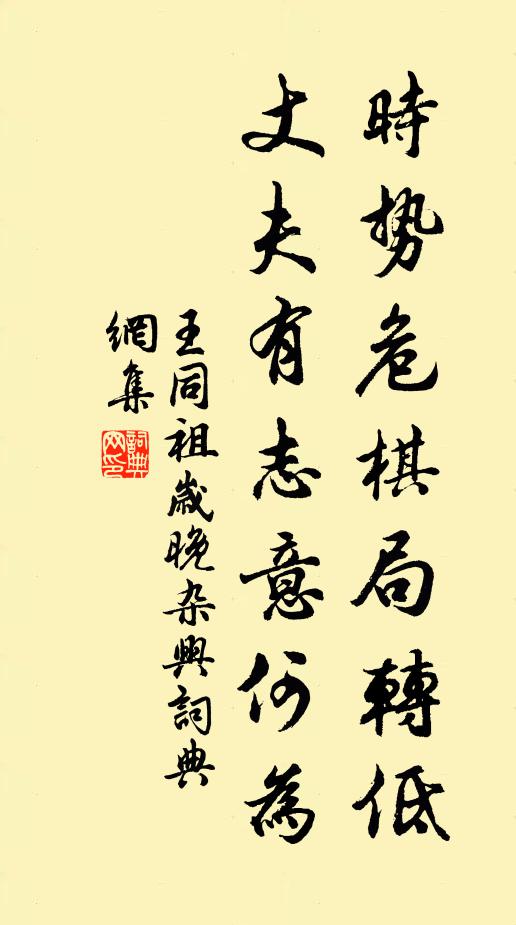 時势危棋局轉低
丈夫有志意何為
王同祖歲晚杂興詞典
網集
詞典網印